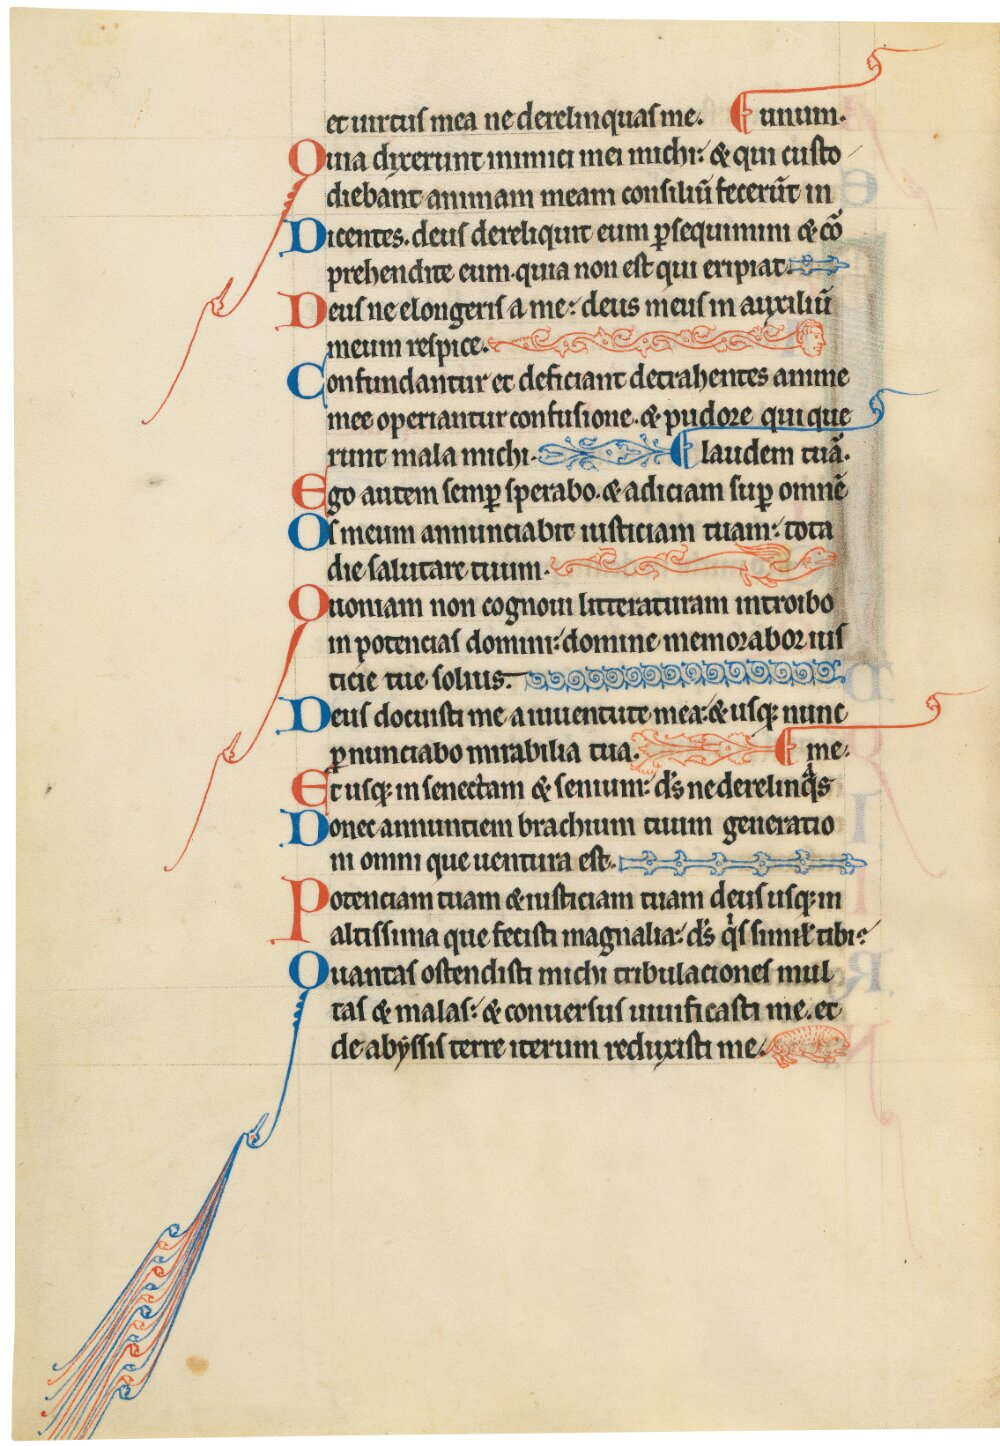 et uirtus mea ne derelinquas me. ⸿ unum.
Quia dixerunt inimici mei michi: & qui custo
diebant animam meam consiliū fecerūt in
Dicentes. deus dereliquit eum ꝑsequimini & cō
prehendite eum. quia non est qui eripiat.
Deus ne elongeris a me: deus meus in auxiliū
meum respice.
Confundantur et deficiant detrahentes anime
mee operiantur confusione. & pudore qui que
runt mala michi. ⸿ laudem tuā.
Ego autem semꝑ sperabo. & adiciam suꝑ omnē
Os meum annunciabit iusticiam tuam: tota
die salutare tuum.
Quoniam non cognoui litteraturam introibo
in potencias domini: domine memorabor ius
ticie tue solius.
Deus docuisti me a iuuentute mea: & usqꝫ nunc
ꝓnunciabo mirabilia tua. ⸿ me.
Et usqꝫ in senectam & senium: d's ne derelinqᵃs
Donec annuntiem brachium tuum generatio
ni omni que uentura est.
Potenciam tuam & iusticiam tuam deus usqꝫ in
altissima que fecisti magnalia: d's qⁱs simił tibi?
Quantas ostendisti michi tribulaciones mul
tas & malas: & conuersus uiuificasti me. et
de abẏssis terre iterum reduxisti me.